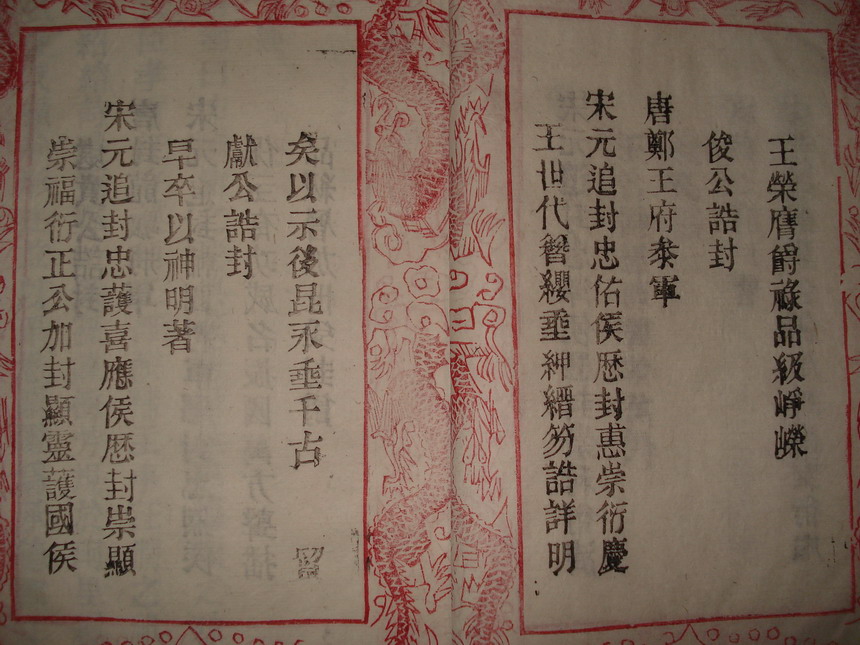 王榮膺爵祿品級崢嶸
俊公誥封
唐鄭王府叅軍
宋元追封忠佑侯歷封惠崇衍慶
王世代簪纓垂紳縉笏誥詳明
矣以示後昆永垂千古
獻公誥封
早卒以神明著
宋元追封忠護喜應侯歷封崇顯
崇福衍正公加封顯靈護國侯